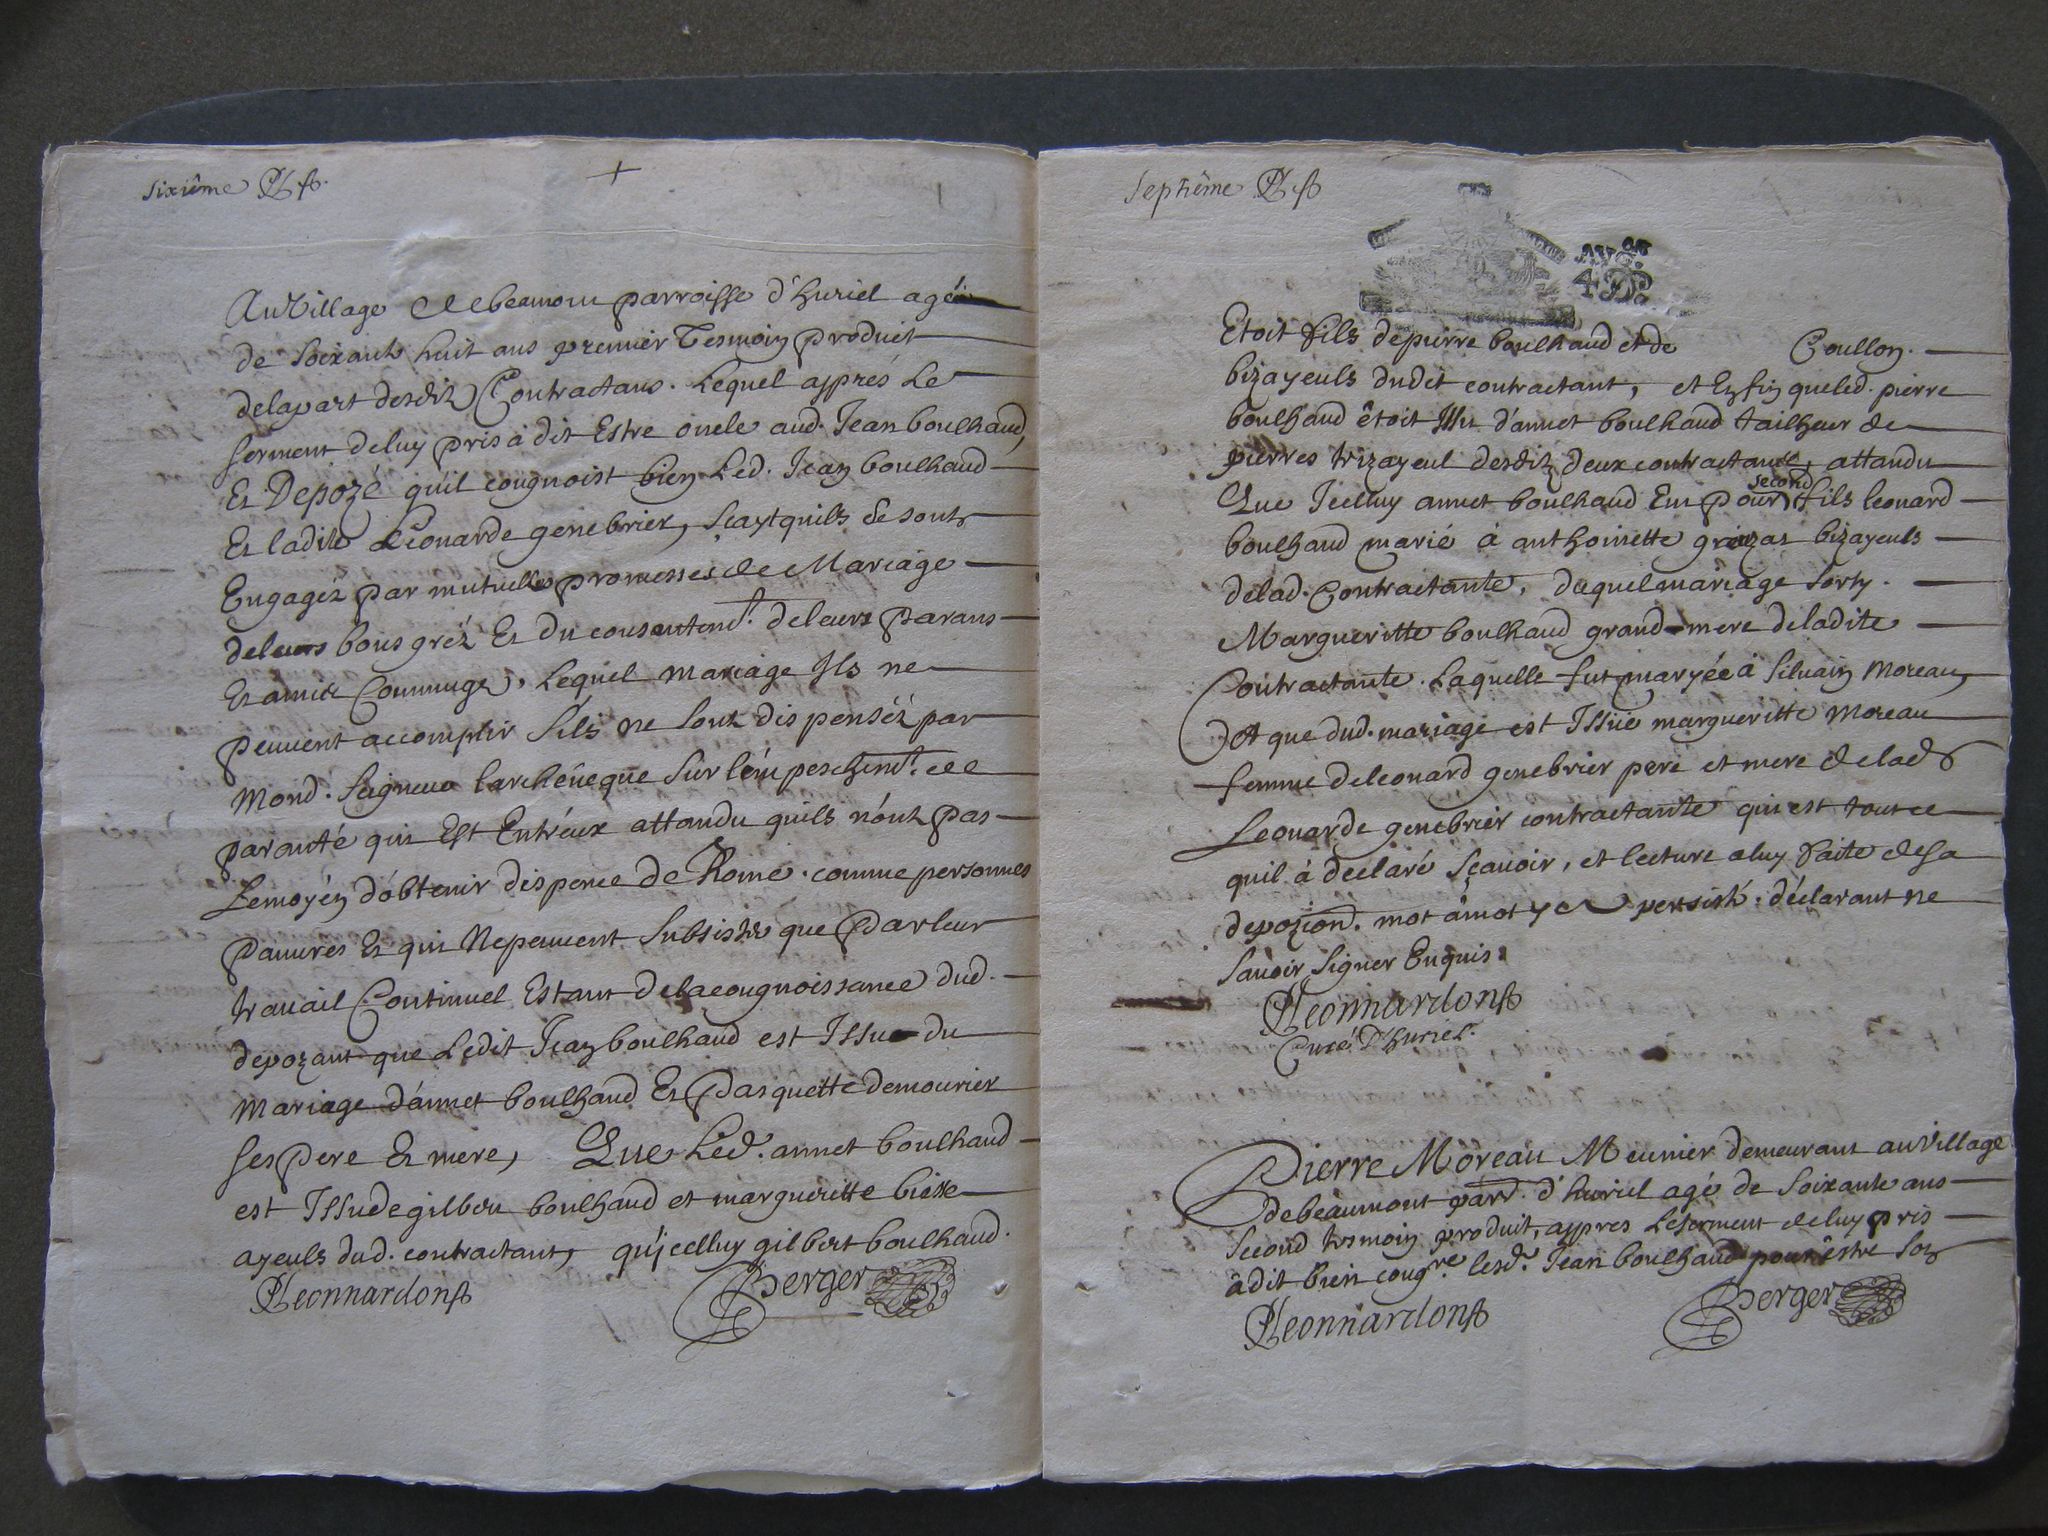 Sixiême
Au Village de beaumont parroisse d'huriel agé
de soixante huit ans premier Tesmoin produit
delapart desditz Contractans. Lequel apprés Le
serment deluy pris à dit Estre oncle aud. Jean boulhaud,
Et Depozé quil cougnoist bien Led. Jean boulhaud
Et ladite Léonarde genebrier, sçayt quils se sont
Engagéz par mutuelles promesses de Mariage
deleurs bons gréz Et du consentemt. deleurs Parans
Et amis Communs, Lequel mariage Ils ne
peuvent accomplir sils ne sont dispenséz par
Mond. Seigneur larchêueque sur lémpeschemt. de
paranté qui Est Entréux attandu quils nónt Pas
Lemoyén dóbtenir dispence de Rome. comme personnes
Pauures Et qui Nepeuuent subsister que Parleur
trauail Continuel Estant delacougnoissance dud.
depozant que Ledit Jean boulhaud est Issu du
Mariage dánnet boulhaud Et Pasquette demourier
ses Pere Et mere, Que Led. annet boulhaud
est Issudegilbert boulhaud et margueritte biesse
ayeuls dud. contractant, qu'jcelluy gilbert boulhaud.
PLeonnardon
Berger
Septiême
Etoit fils depierre boulhaud et de Coullon.
bizayeuls dudit contractant, et Enfin queled. pierre
boulhaud êtoit Issu d'annet boulhaud tailheur de
pierres trizayeul desditz deux contractants, attandu
second
Que Jcelluy annet boulhaud Eut pour fils leonard
boulhaud marié à anthoinette bizayeuls
delad. Contractante, duquel mâriage sorty.
Margueritte boulhaud grand-mere deladite
Contractante. Laquelle fut maryée à siluain Moreau,
Et que dud. mariage est Issüe margueritte Moreau
femme deleonard genebrier pere et mere delad.
Leonarde genebrier contractante qui est tout ce
quil à declaré sçauoir, et lecture aluy faite de sa
depozion. mot âmot y a persisté. déclarant ne
sauoir signer Enquis.
PLeonnardon
Curé D'huriel.
Pierre Moreau Meunier demeurant au Village
debeaumont parr. d'huriel agé de soixante ans
second tesmoin produit, appres Leserment deluy pris
à dit bien cougre. lesd. Jean boulhaud pour êstre son
PLeonnardon
Berger